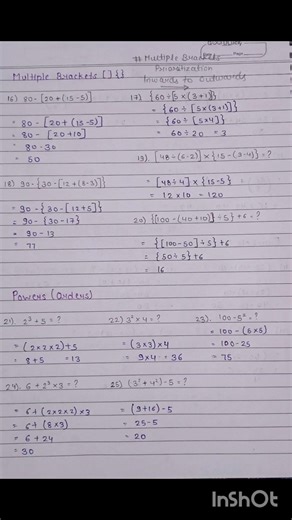 ## Multiple Brackets
Priorshization
Inwards to outwards
Multiple Brackets [ ] { }
16) 80 - [20 + (15-5)]
= 80 - [20 + (15-5)]
= 80 - [20+10]
= 80 - 30
= 50
17) {60 ÷ [5 × (3+1)]}
= {60 ÷ [5 × (3+1)]}
= {60 ÷ [5×4]}
= 60 ÷ 20 = 3
18) 90 - {30 - [12 + (8-3)]}
= 90 - {30 - [12+5]}
= 90 - {30 - 17}
= 90 - 13
= 77
19) [48 ÷ (6-2)] × {15 - (9-4)} = ?
= [48 ÷ 4] × {15-5}
= 12 × 10 = 120
20) {[100 - (40+10)] ÷ 5} + 6 = ?
= {[100-50] ÷ 5} + 6
= {50 ÷ 5} + 6
= 16
Powers (Orders)
21) 2³ + 5 = ?
= (2×2×2) + 5
= 8+5 = 13
22) 3² × 4 = ?
= (3×3) × 4
= 9×4 = 36
23) 100 - 5² = ?
= 100 - (5×5)
= 100 - 25
= 75
24) 6 + 2³ × 3 = ?
= 6 + (2×2×2) × 3
= 6 + (8×3)
= 6 + 24
= 30
25) (3² + 4²) - 5 = ?
= (9+16) - 5
= 25 - 5
= 20
InShOt